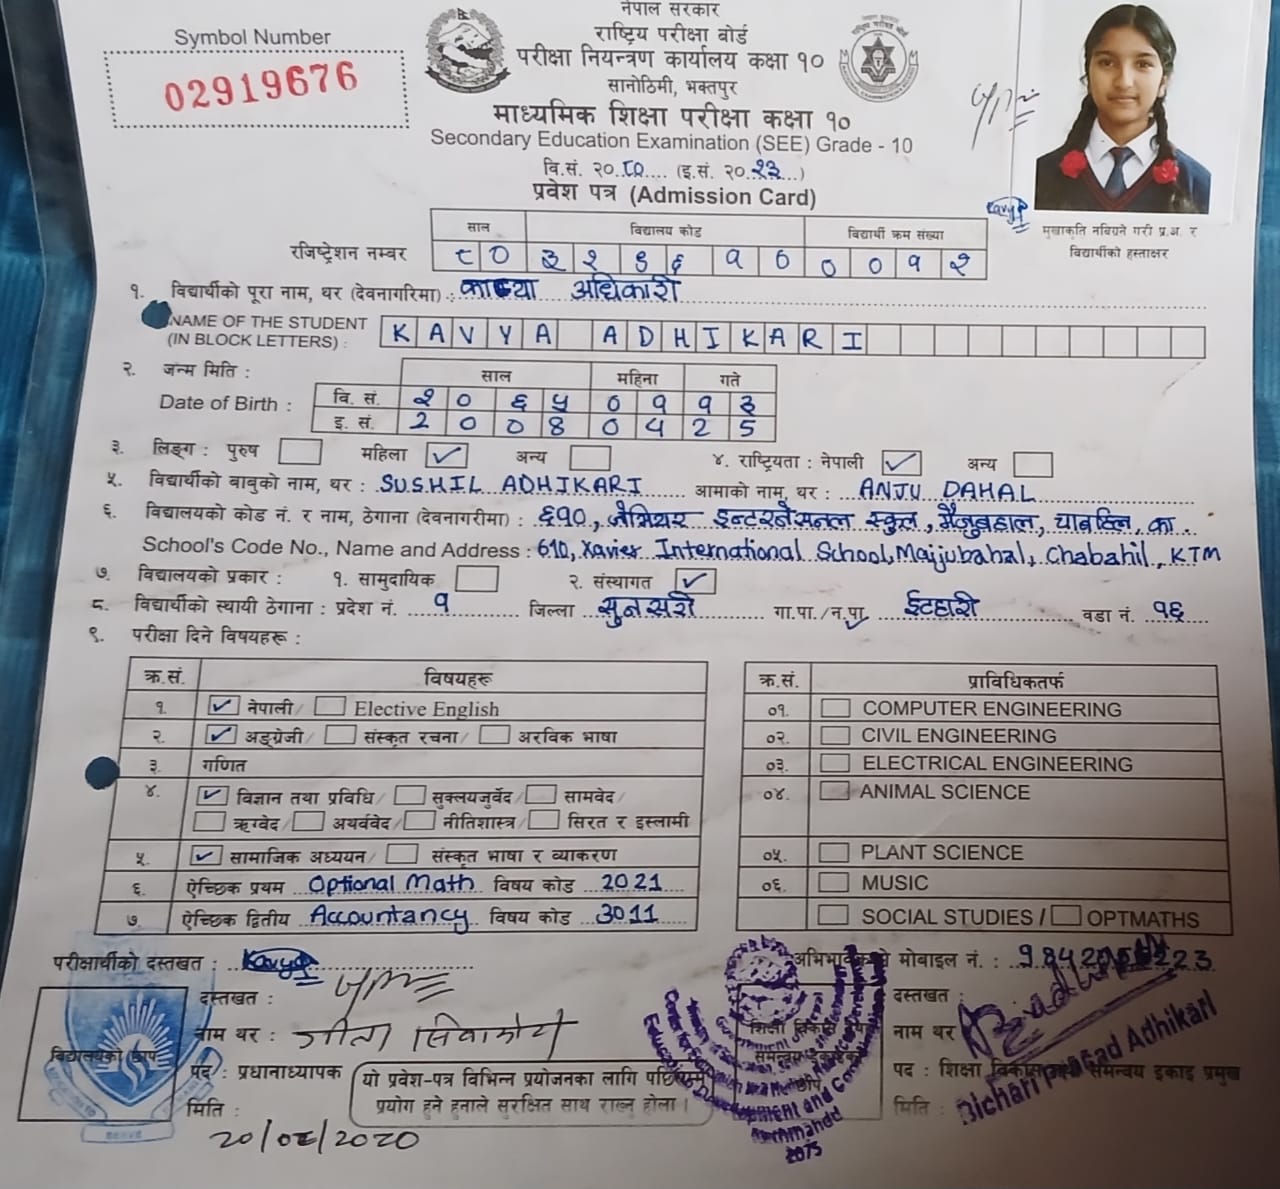 नेपाल सरकार
राष्ट्रिय परीक्षा बोर्ड
परीक्षा नियन्त्रण कार्यालय कक्षा १०
सानोठिमी, भक्तपुर
माध्यमिक शिक्षा परीक्षा कक्षा १०
Secondary Education Examination (SEE) Grade - 10
वि.सं. २०८०.... (इ.सं. २०२३..)
प्रवेश पत्र (Admission Card)
Symbol Number
02919676
मुखाकृति नबिग्रने गरी प्र.अ. र
विद्यार्थीको हस्ताक्षर
साल विद्यालय कोड विद्यार्थी क्रम संख्या
रजिष्ट्रेशन नम्बर
१. विद्यार्थीको पूरा नाम, थर (देवनागरिमा) : काव्या अधिकारी
NAME OF THE STUDENT
(IN BLOCK LETTERS) : KAVYA ADHIKARI
२. जन्म मिति : साल महिना गते
Date of Birth : वि. सं. २ ० ६ ५ ० १ १ ३
इ. सं. 2 0 0 8 0 4 2 5
३. लिङ्ग : पुरुष महिला ✓ अन्य ४. राष्ट्रियता : नेपाली ✓ अन्य
५. विद्यार्थीको बाबुको नाम, थर : SUSHIL ADHIKARI आमाको नाम, थर : ANJU DAHAL
६. विद्यालयको कोड नं. र नाम, ठेगाना (देवनागरीमा) : ६१०, जेभियर इन्टरनेसनल स्कुल, मैजुबहाल, चाबहिल, का.
School's Code No., Name and Address : 610, Xavier International School, Maijubahal, Chabahil, KTM
७. विद्यालयको प्रकार : १. सामुदायिक २. संस्थागत ✓
८. विद्यार्थीको स्थायी ठेगाना : प्रदेश नं. १ जिल्ला सुनसरी गा.पा./न.पा. ईटहारी वडा नं. १६
९. परीक्षा दिने विषयहरू :
क्र.सं. विषयहरू
१. ✓ नेपाली/ Elective English
२. ✓ अङ्ग्रेजी/ संस्कृत रचना/ अरविक भाषा
३. गणित
४. ✓ विज्ञान तथा प्रविधि/ सुक्लयजुर्वेद/ सामवेद/
ऋग्वेद/ अथर्ववेद/ नीतिशास्त्र/ सिरत र इस्लामी
५. ✓ सामाजिक अध्ययन/ संस्कृत भाषा र व्याकरण
६. ऐच्छिक प्रथम Optional Math विषय कोड 2021
७. ऐच्छिक द्वितीय Accountancy विषय कोड 3011
क्र.सं. प्राविधिकतर्फ
०१. COMPUTER ENGINEERING
०२. CIVIL ENGINEERING
०३. ELECTRICAL ENGINEERING
०४. ANIMAL SCIENCE
०५. PLANT SCIENCE
०६. MUSIC
SOCIAL STUDIES / OPTMATHS
परीक्षार्थीको दस्तखत : Kavya
दस्तखत :
नाम थर : गीता सिवाकोटी
विद्यालयको छाप
पद : प्रधानाध्यापक
मिति :
20/08/2020
यो प्रवेश-पत्र विभिन्न प्रयोजनका लागि पछिसम्म
प्रयोग हुने हुनाले सुरक्षित साथ राख्नु होला ।
मोबाइल नं. :
दस्तखत :
नाम थर
पद : शिक्षा विकास तथा समन्वय इकाइ प्रमुख
मिति :
Prasad Adhikari
2075